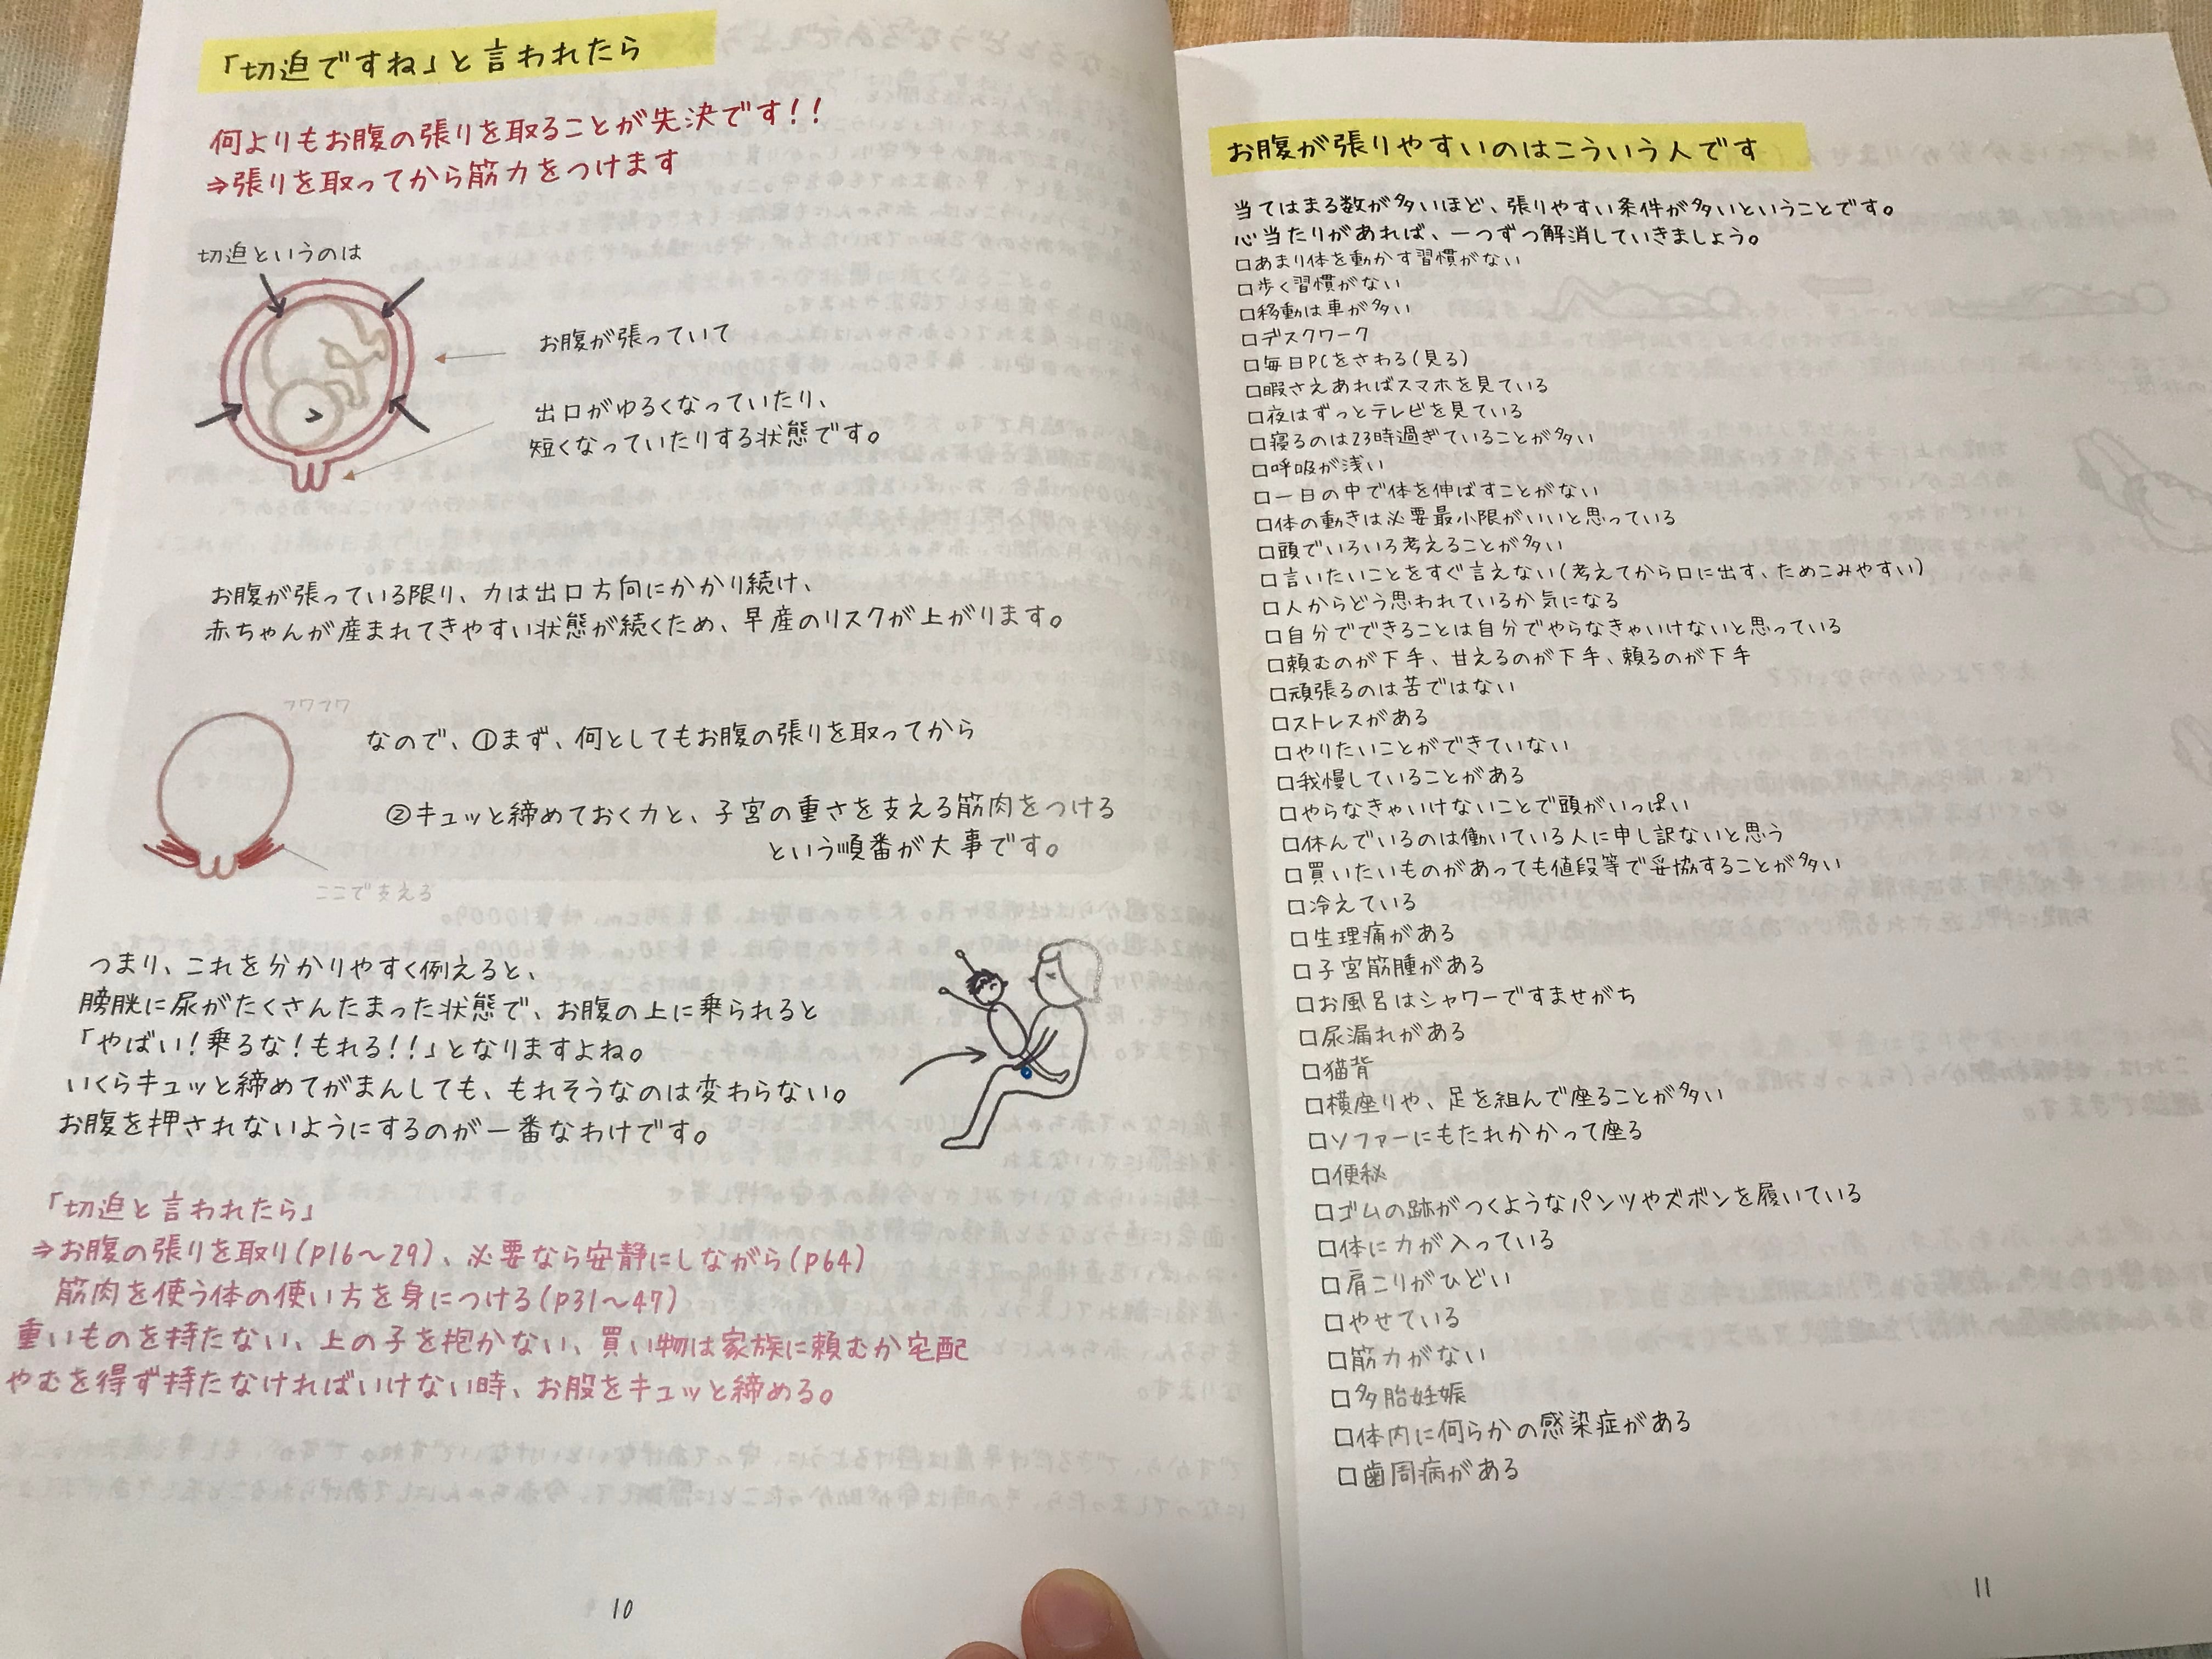 「切迫ですね」と言われたら
何よりもお腹の張りを取ることが先決です！！
⇒張りを取ってから筋力をつけます
切迫というのは
お腹が張っていて
出口がゆるくなっていたり、
短くなっていたりする状態です。
お腹が張っている限り、力は出口方向にかかり続け、
赤ちゃんが産まれてきやすい状態が続くため、早産のリスクが上がります。
フワフワ
なので、①まず、何としてもお腹の張りを取ってから
②キュッと締めておく力と、子宮の重さを支える筋肉をつける
という順番が大事です。
ここで支える
つまり、これを分かりやすく例えると、
膀胱に尿がたくさんたまった状態で、お腹の上に乗られると
「やばい！乗るな！もれる！！」となりますよね。
いくらキュッと締めてがまんしても、もれそうなのは変わらない。
お腹を押されないようにするのが一番なわけです。
「切迫と言われたら」
⇒お腹の張りを取り(P16～29)、必要なら安静にしながら(P64)
筋肉を使う体の使い方を身につける(P31～47)
重いものを持たない、上の子を抱かない、買い物は家族に頼むか宅配
やむを得ず持たなければいけない時、お股をキュッと締める。
10
お腹が張りやすいのはこういう人です
当てはまる数が多いほど、張りやすい条件が多いということです。
心当たりがあれば、一つずつ解消していきましょう。
□あまり体を動かす習慣がない
□歩く習慣がない
□移動は車が多い
□デスクワーク
□毎日PCをさわる(見る)
□暇さえあればスマホを見ている
□夜はずっとテレビを見ている
□寝るのは23時過ぎていることが多い
□呼吸が浅い
□一日の中で体を伸ばすことがない
□体の動きは必要最小限がいいと思っている
□頭でいろいろ考えることが多い
□言いたいことをすぐ言えない(考えてから口に出す、ためこみやすい)
□人からどう思われているか気になる
□自分でできることは自分でやらなきゃいけないと思っている
□頼むのが下手、甘えるのが下手、頼るのが下手
□頑張るのは苦ではない
□ストレスがある
□やりたいことができていない
□我慢していることがある
□やらなきゃいけないことで頭がいっぱい
□休んでいるのは働いている人に申し訳ないと思う
□買いたいものがあっても値段等で妥協することが多い
□冷えている
□生理痛がある
□子宮筋腫がある
□お風呂はシャワーですませがち
□尿漏れがある
□猫背
□横座りや、足を組んで座ることが多い
□ソファーにもたれかかって座る
□便秘
□ゴムの跡がつくようなパンツやズボンを履いている
□体に力が入っている
□肩こりがひどい
□やせている
□筋力がない
□多胎妊娠
□体内に何らかの感染症がある
□歯周病がある
11